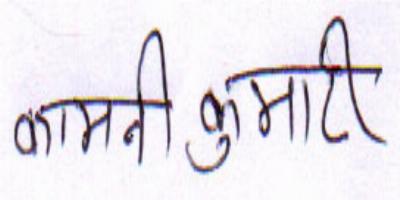 कामनी कुमारी